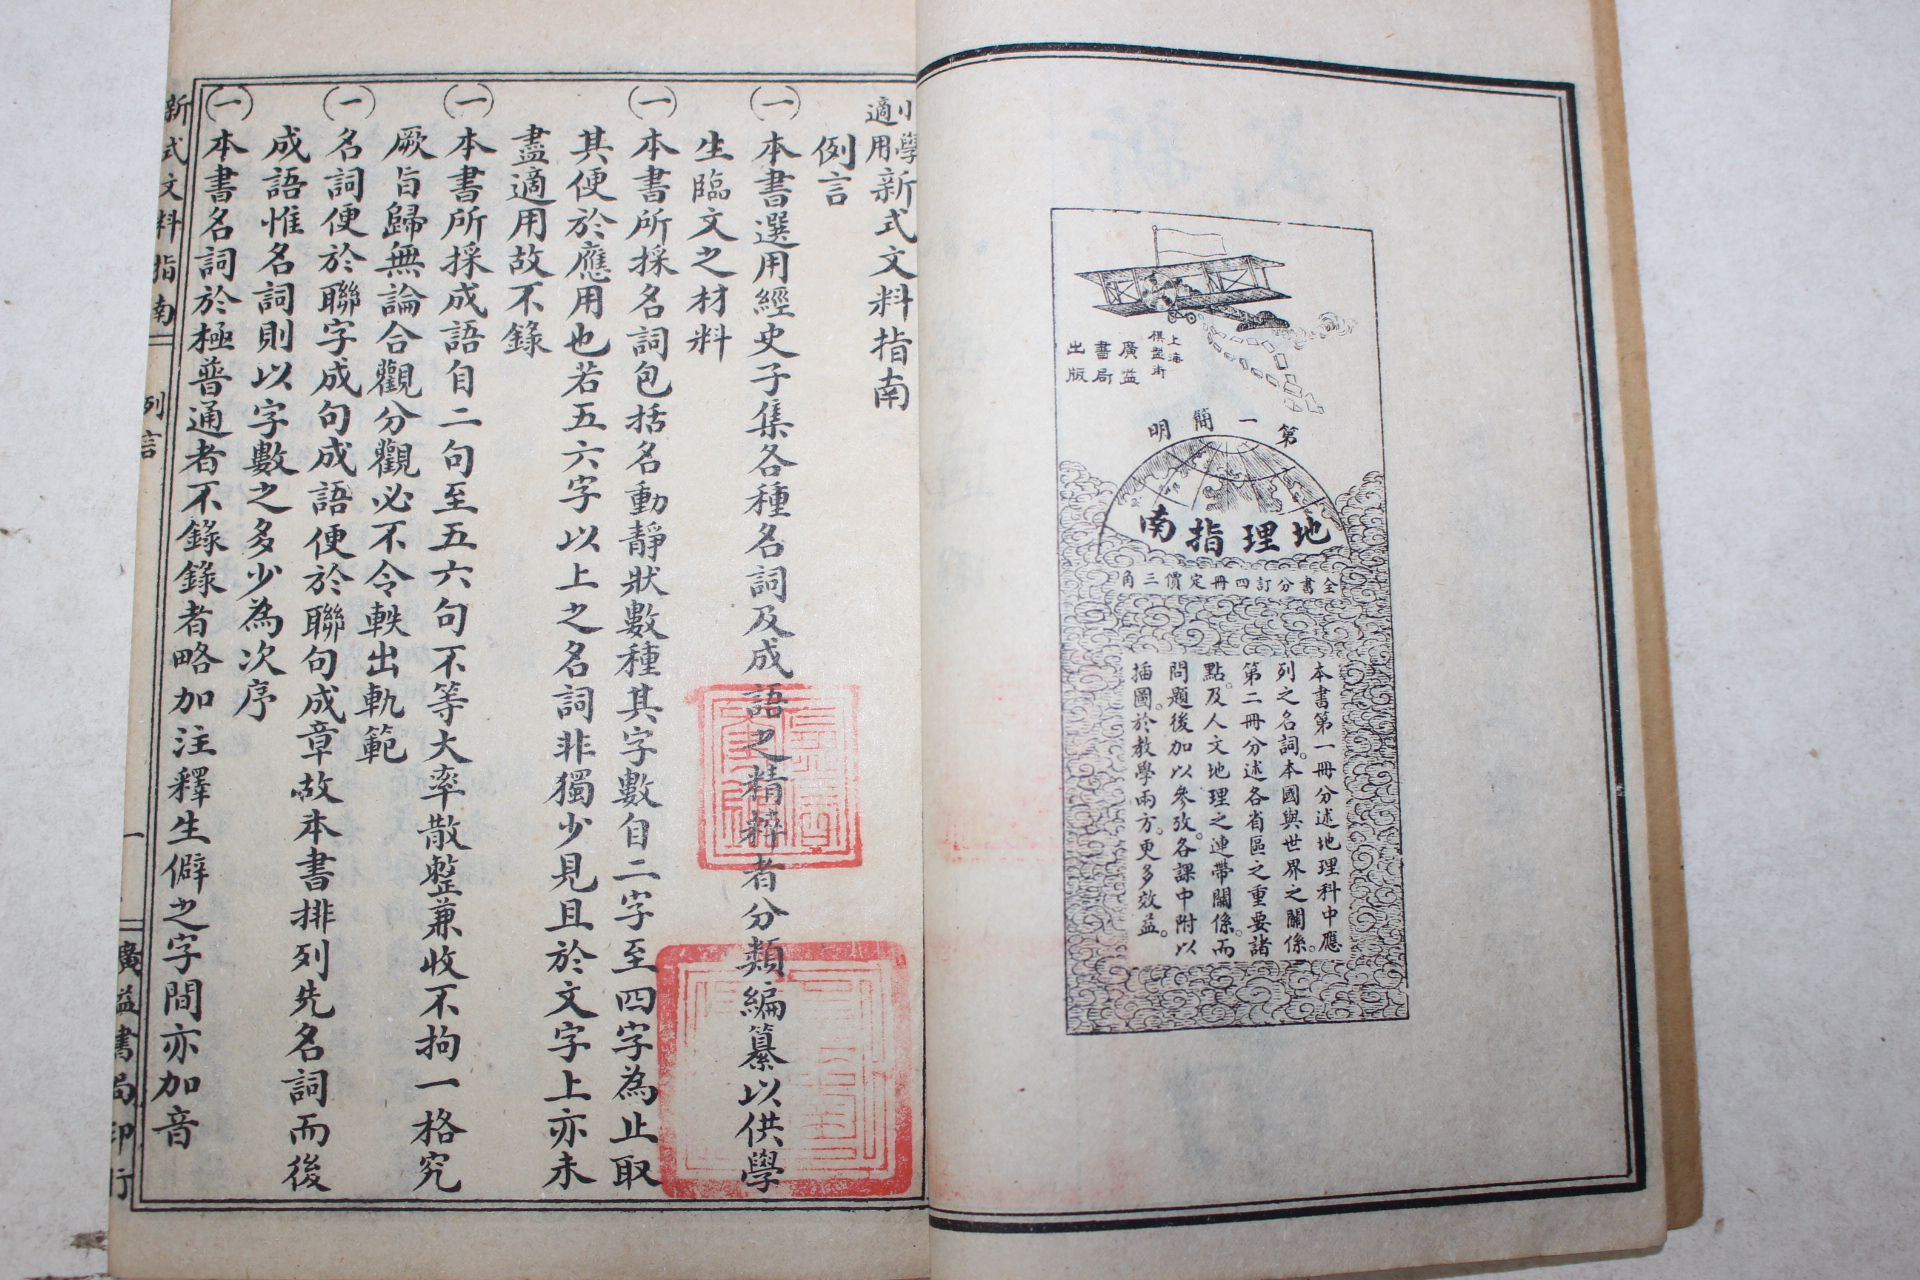 上海
棋盤街
廣益
書局
出版
第一簡明
地理指南
全書分訂四冊定價三角
本書第一冊分述地理科中應
列之名詞。本國與世界之關係。
第二冊分述各省區之重要諸
點。及人文地理之連帶關係。而
問題後加以參攷。各課中附以
插圖。於教學兩方。更多效益。
小學適用新式文料指南
例言
㈠本書選用經史子集各種名詞及成語之精粹者分類編纂以供學
生臨文之材料
㈠本書所採名詞包括名動靜狀數種其字數自二字至四字為止取
其便於應用也若五六字以上之名詞非獨少見且於文字上亦未
盡適用故不錄
㈠本書所採成語自二句至五六句不等大率散整兼收不拘一格究
厥旨歸無論合觀分觀必不令軼出軌範
㈠名詞便於聯字成句成語便於聯句成章故本書排列先名詞而後
成語惟名詞則以字數之多少為次序
㈠本書名詞於極普通者不錄錄者略加注釋生僻之字間亦加音
新式文料指南
例言
一
廣益書局印行